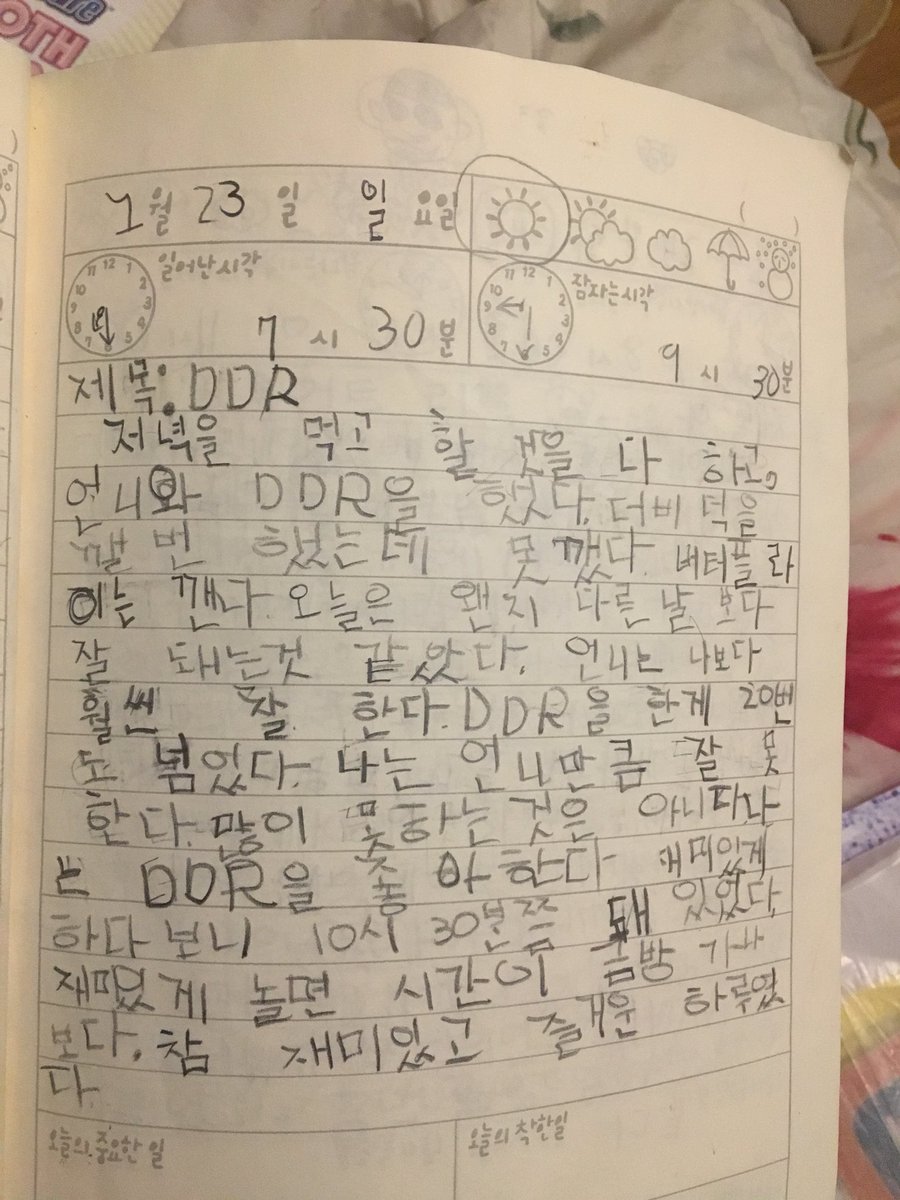 OTH
1월 23일 일요일
일어난시각
7시 30분
잠자는시각
9시 30분
제목: DDR
저녁을 먹고 할 것을 다 하고
언니와 DDR을 했다. 더비 덕을
깰번 했는데 못 깼다. 버터플라
이는 깬다. 오늘은 왠지 다른날 보다
잘 돼는것 같았다. 언니는 나보다
훨씬 잘 한다. DDR을 한게 20번
도 넘었다. 나는 언니만큼 잘 못
한다. 많이 못하는 것은 아니다 나
는 DDR을 좋아 한다 재미있게
하다 보니 10시 30분쯤 돼 있었다.
재미있게 놀면 시간이 금방 가나
보다. 참 재미있고 즐거운 하루였
다.
오늘의 중요한 일
오늘의 착한일